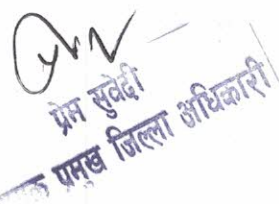 प्रेम सुवेदी
प्रमुख जिल्ला अधिकारी